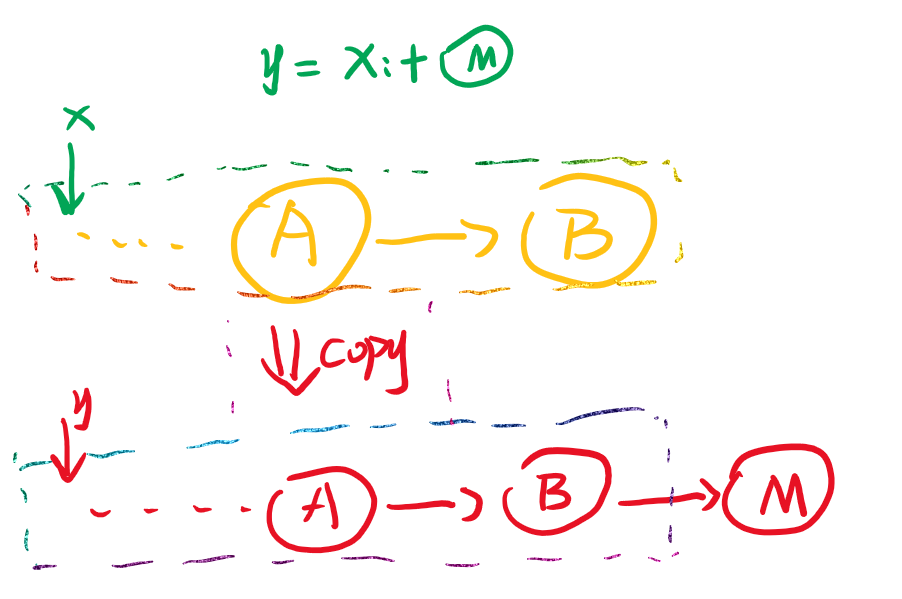 y = xi + M
x
.... A → B
copy
y
..... A → B → M